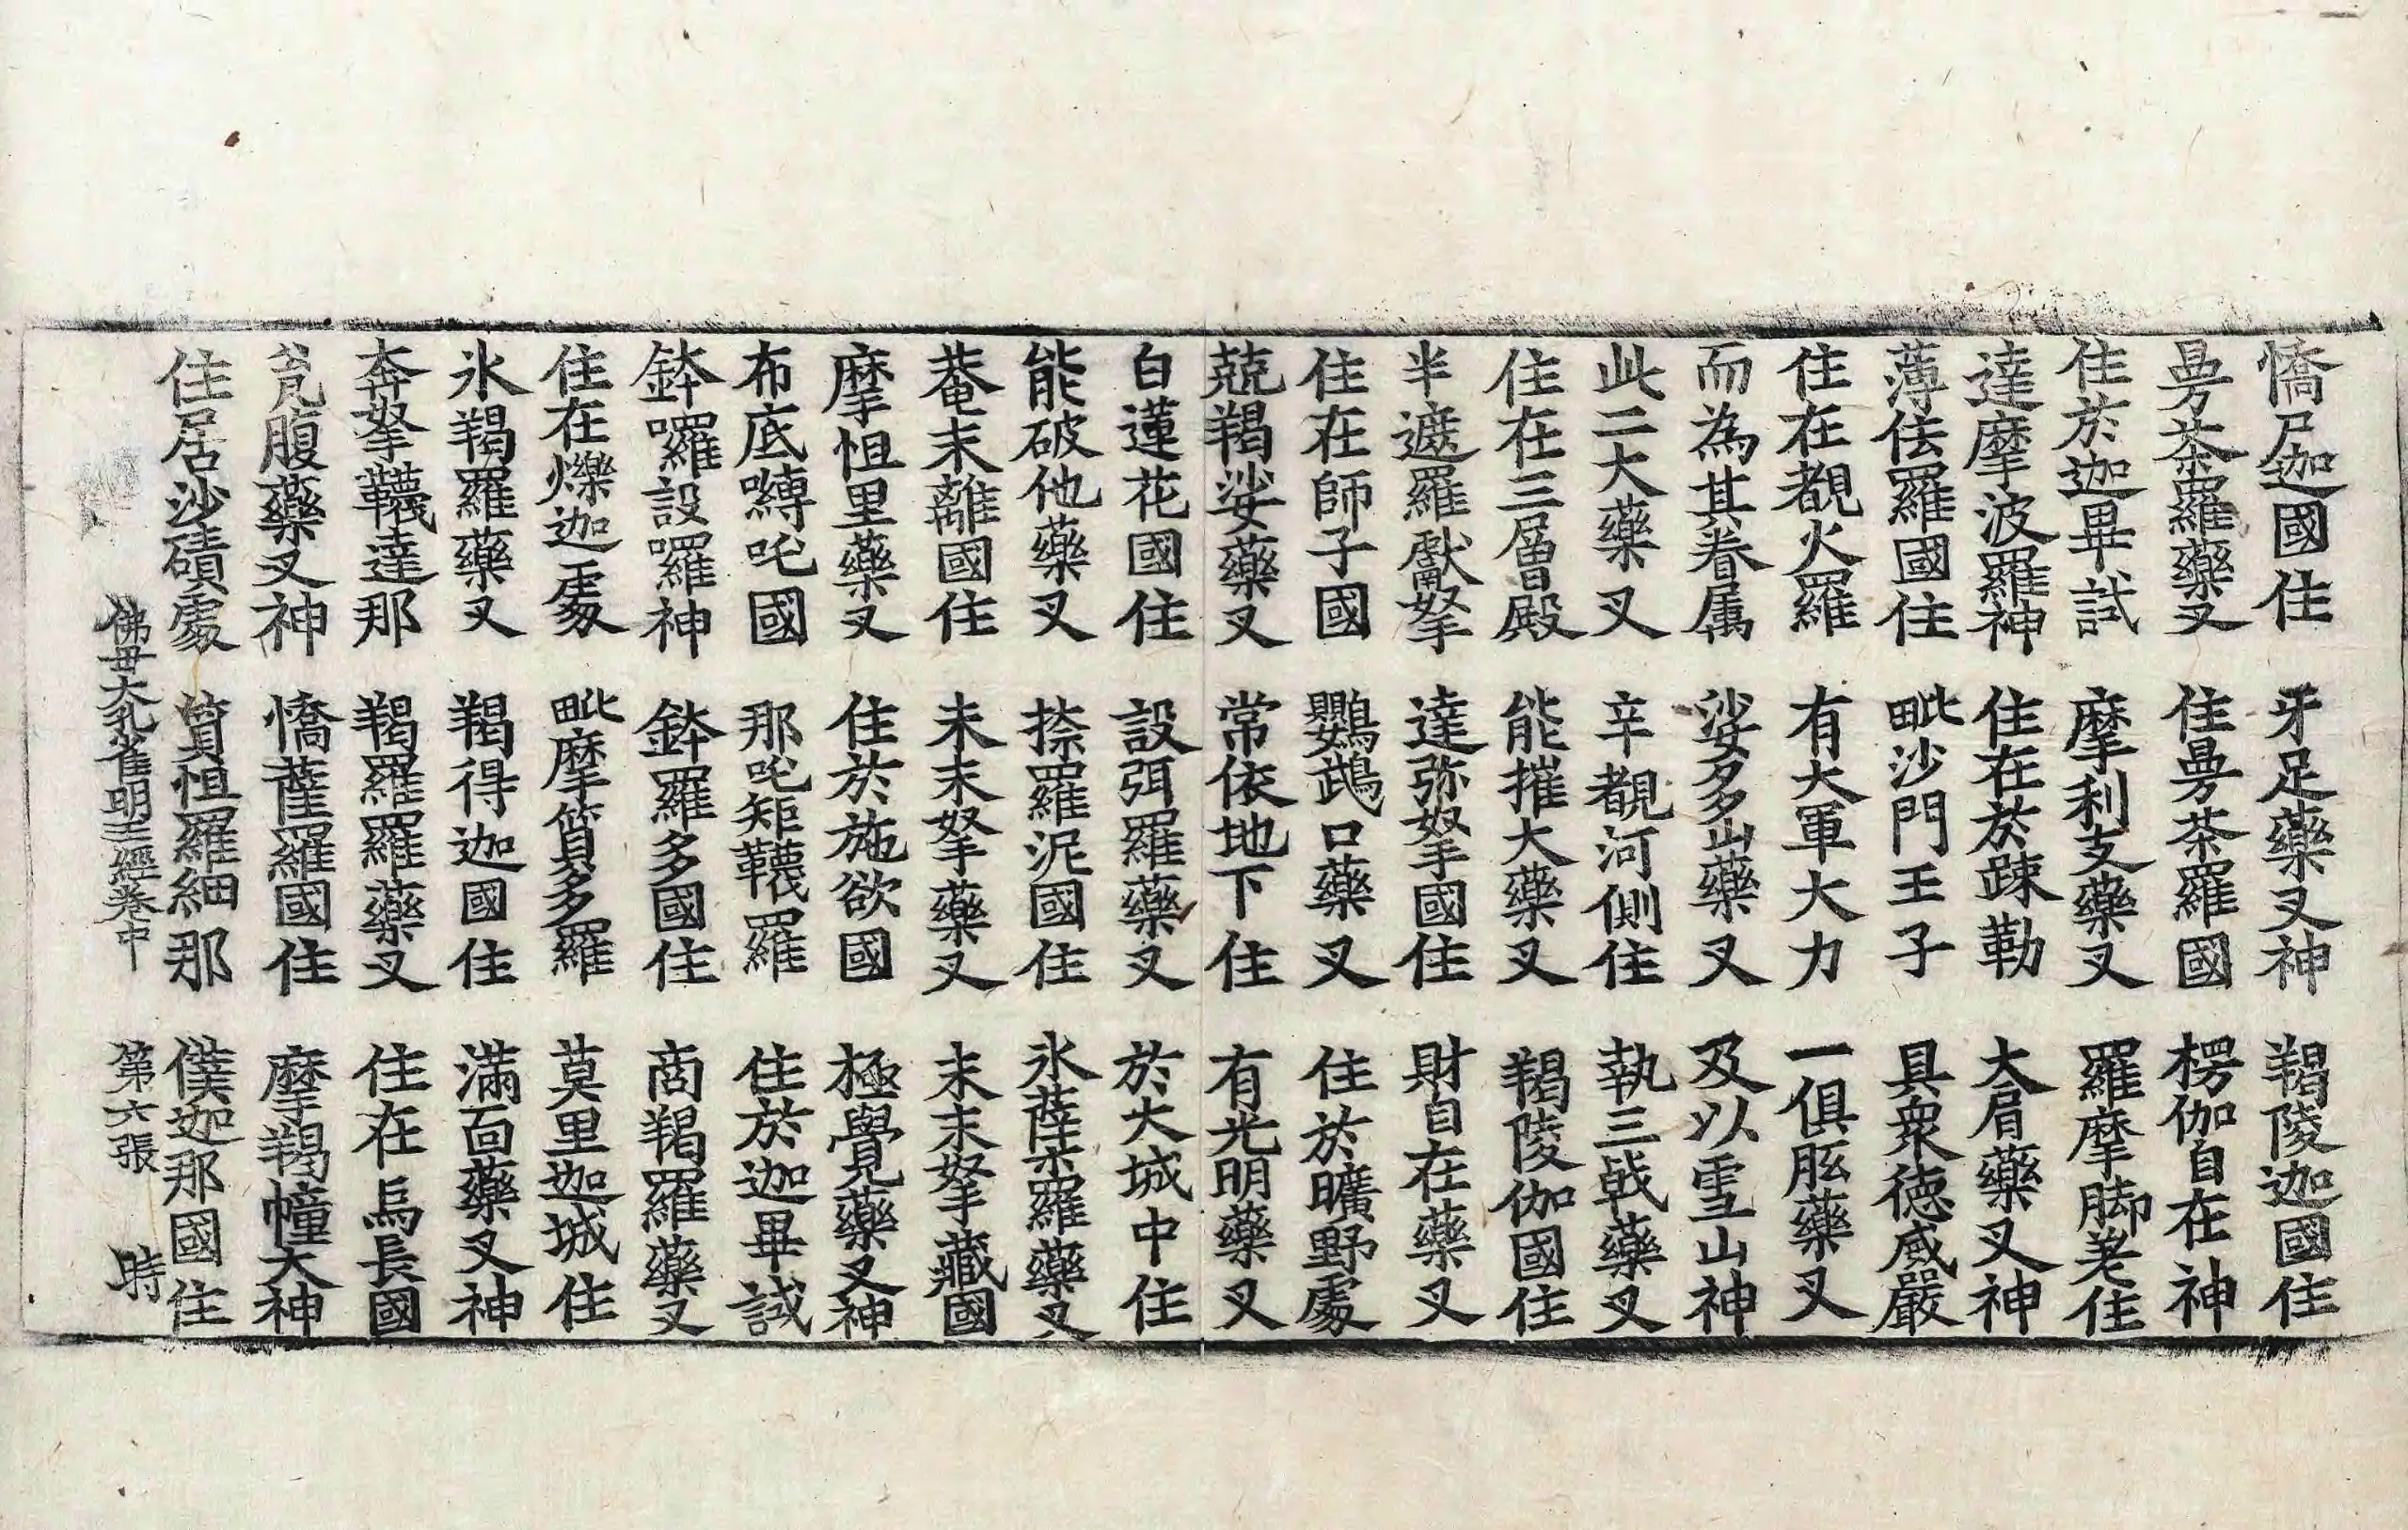 憍尸迦國住 牙足藥叉神 羯陵迦國住
曼荼羅藥叉 住曼荼羅國 楞伽自在神
住於迦畢試 摩利支藥叉 羅摩脚差住
達摩波羅神 住在於踈勒 大肩藥叉神
薄佉羅國住 毗沙門王子 具衆德威嚴
住在覩火羅 有大軍大力 一俱胝藥叉
而為其眷屬 娑多山藥叉 及以雪山神
此二大藥叉 辛覩河側住 執三戟藥叉
住在三層殿 能摧大藥叉 羯陵伽國住
半遮羅獻拏 達弥拏國住 財自在藥叉
住在師子國 鸚鵡口藥叉 住於曠野處
兢羯娑藥叉 常依地下住 有光明藥叉
白蓮花國住 設弭羅藥叉 於大城中住
能破他藥叉 捺羅泥國住 氷蘖羅藥叉
菴末離國住 末末拏藥叉 末末拏藏國
摩怛里藥叉 住於施欲國 極覺藥叉神
布底嚩吒國 那吒矩韈羅 住於迦畢試
鉢囉設囉神 鉢羅多國住 商羯羅藥叉
住在爍迦處 毗摩質多羅 莫里迦城住
氷羯羅藥叉 羯得迦國住 滿面藥叉神
奔拏韈達那 羯羅羅藥叉 住在烏長國
瓮腹藥叉神 憍薩羅國住 摩羯幢大神
住居沙磧處 質怛羅細那 僕迦那國住
佛母大孔雀明王經卷中 第六張 時